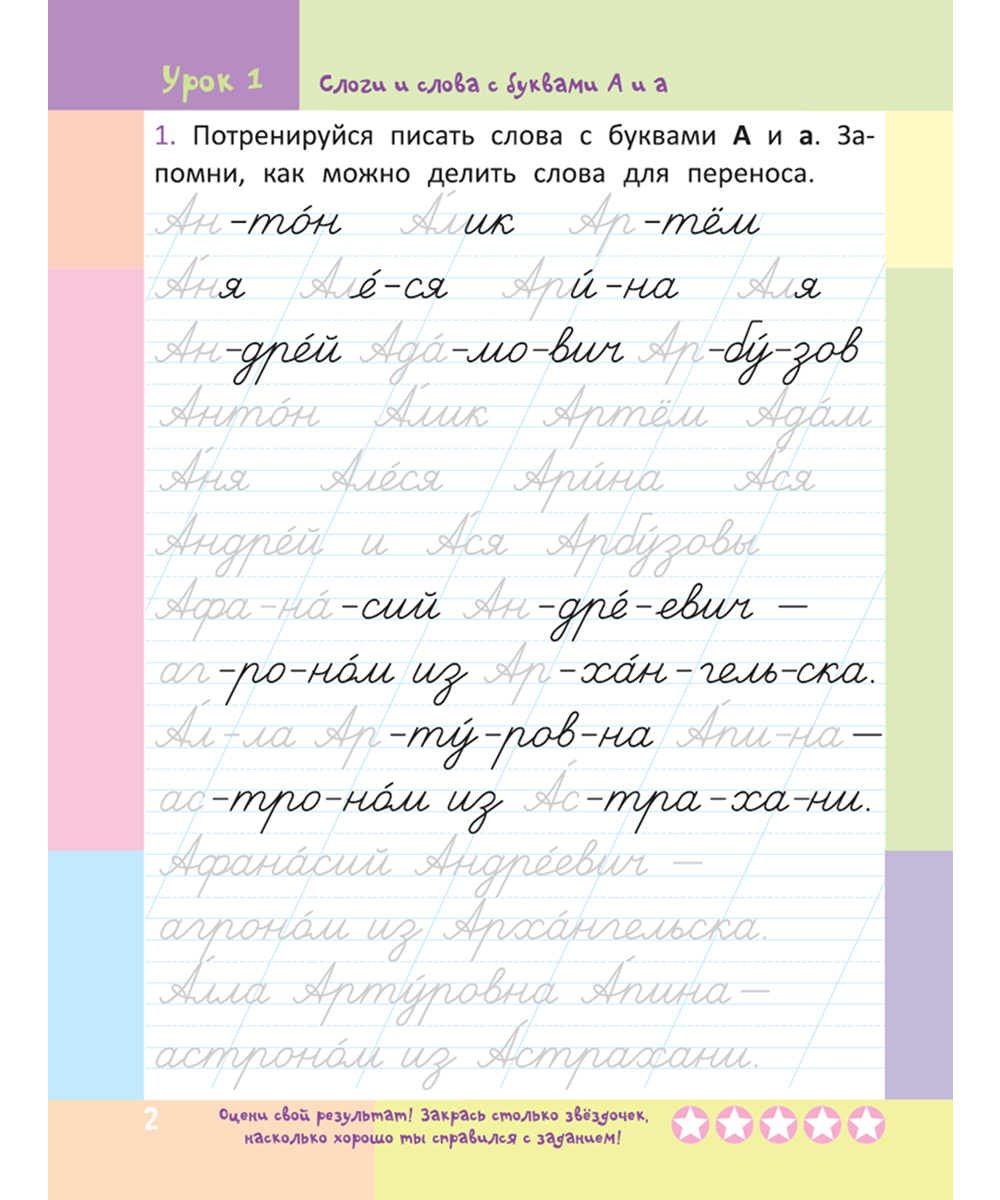 Урок 1
Слоги и слова с буквами А и а
1. Потренируйся писать слова с буквами А и а. За-
помни, как можно делить слова для переноса.
Ан-то́н А́лик Ар-тём
А́ня Але́-ся Ари́-на Аля
Ан-дре́й Ада́-мо-вич Ар-бу́-зов
Анто́н А́лик Артём Ада́м
А́ня Але́ся Ари́на А́ся
Андре́й и А́ся Арбу́зовы
Афа-на́-сий Ан-дре́-евич —
аг-ро-но́м из Ар-ха́н-гель-ска.
А́л-ла Ар-ту́-ров-на А́пи-на —
ас-тро-но́м из А́с-тра-ха-ни.
Афана́сий Андре́евич —
агроно́м из Арха́нгельска.
А́лла Арту́ровна А́пина —
астроно́м из А́страхани.
2
Оцени свой результат! Закрась столько звёздочек,
насколько хорошо ты справился с заданием!